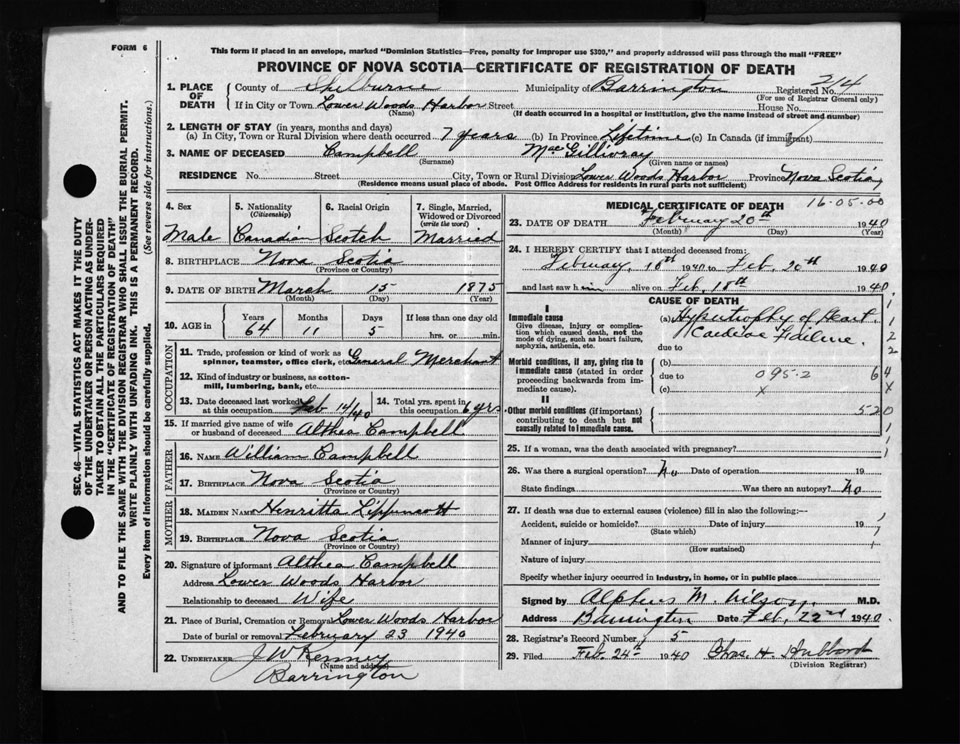 FORM 6
This form if placed in an envelope, marked "Dominion Statistics—Free, penalty for improper use $300," and properly addressed will pass through the mail "FREE"
PROVINCE OF NOVA SCOTIA—CERTIFICATE OF REGISTRATION OF DEATH
1. PLACE OF DEATH County of Shelburne Municipality of Barrington Registered No. 214
(For use of Registrar General only)
If in City or Town Lower Woods Harbor Street House No.
(Name) (If death occurred in a hospital or institution, give the name instead of street and number)
2. LENGTH OF STAY (in years, months and days)
(a) In City, Town or Rural Division where death occurred 7 years (b) In Province Lifetime (c) In Canada (if immigrant)
3. NAME OF DECEASED Campbell MacGillivray
(Surname) (Given name or names)
RESIDENCE No. Street City, Town or Rural Division Lower Woods Harbor Province Nova Scotia
(Residence means usual place of abode. Post Office Address for residents in rural parts not sufficient)
4. Sex 5. Nationality (Citizenship) 6. Racial Origin 7. Single, Married, Widowed or Divorced (write the word)
Male Canadin Scotch Married
8. BIRTHPLACE Nova Scotia
(Province or Country)
9. DATE OF BIRTH March 15 1875
(Month) (Day) (Year)
10. AGE in Years Months Days If less than one day old
64 11 5 hrs. or min.
OCCUPATION
11. Trade, profession or kind of work as spinner, teamster, office clerk, etc. General Merchant
12. Kind of industry or business, as cotton-mill, lumbering, bank, etc.
13. Date deceased last worked at this occupation Feb 14/40 14. Total yrs. spent in this occupation 6 yrs
15. If married give name of wife or husband of deceased Althea Campbell
FATHER
16. NAME William Campbell
17. BIRTHPLACE Nova Scotia
(Province or Country)
MOTHER
18. MAIDEN NAME Henritta Lippencott
19. BIRTHPLACE Nova Scotia
(Province or Country)
20. Signature of informant Althea Campbell
Address Lower Woods Harbor
Relationship to deceased Wife
21. Place of Burial, Cremation or Removal Lower Woods Harbor
Date of burial or removal February 23 1940
22. UNDERTAKER J W Kenney
(Name and address)
Barrington
MEDICAL CERTIFICATE OF DEATH 16-05-00
23. DATE OF DEATH February 20th 1940
(Month) (Day) (Year)
24. I HEREBY CERTIFY that I attended deceased from:
February 1940 to Feb. 20th 1940
and last saw him alive on Feb. 18th 1940
CAUSE OF DEATH
I
Immediate cause
Give disease, injury or complication which caused death, not the mode of dying, such as heart failure, asphyxia, asthenia, etc.
(a) Hypertrophy of Heart.
Cardiac Failure.
due to
Morbid conditions, if any, giving rise to immediate cause (stated in order proceeding backwards from immediate cause).
(b)
due to 095-2 64
(c) x x
II
Other morbid conditions (if important) contributing to death but not causally related to immediate cause.
520
25. If a woman, was the death associated with pregnancy?
26. Was there a surgical operation? No Date of operation 19
State findings Was there an autopsy? No
27. If death was due to external causes (violence) fill in also the following:—
Accident, suicide or homicide? Date of injury 19
(State which)
Manner of injury
(How sustained)
Nature of injury
Specify whether injury occurred in industry, in home, or in public place
Signed by Alpheus M. Wilson M.D.
Address Barrington Date Feb. 22nd 1940.
28. Registrar's Record Number 5
29. Filed Feb. 24th 1940 Chas. H. Hubbard
(Division Registrar)
SEC. 46—VITAL STATISTICS ACT MAKES IT THE DUTY
OF THE UNDERTAKER OR PERSON ACTING AS UNDER-
TAKER TO OBTAIN ALL THE PARTICULARS REQUIRED
IN THE "CERTIFICATE OF REGISTRATION OF DEATH"
AND TO FILE THE SAME WITH THE DIVISION REGISTRAR WHO SHALL ISSUE THE BURIAL PERMIT.
WRITE PLAINLY WITH UNFADING INK. THIS IS A PERMANENT RECORD.
Every item of information should be carefully supplied. (See reverse side for instructions.)